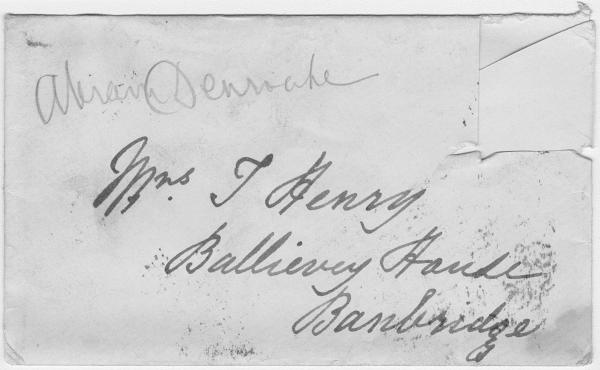 Abram Denroche
Mrs. T Henry
Ballievey House
Banbridge